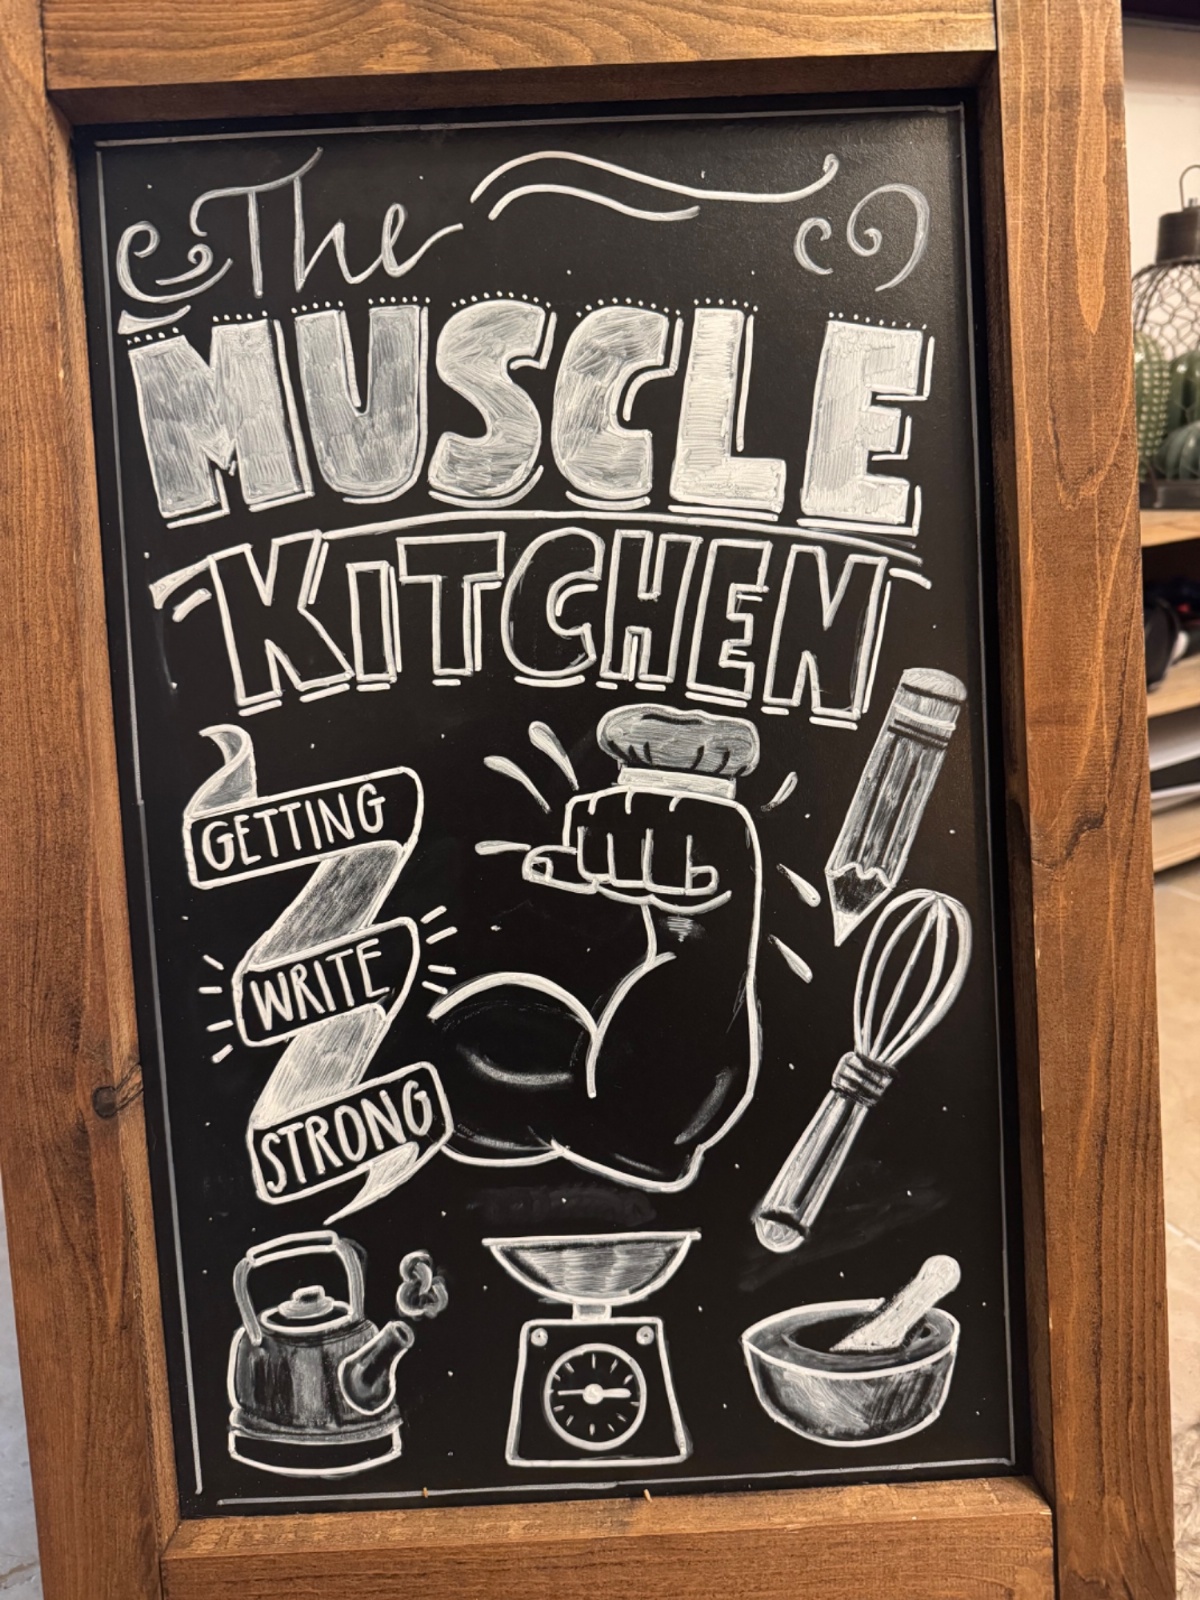 The
MUSCLE
KITCHEN
GETTING
WRITE
STRONG